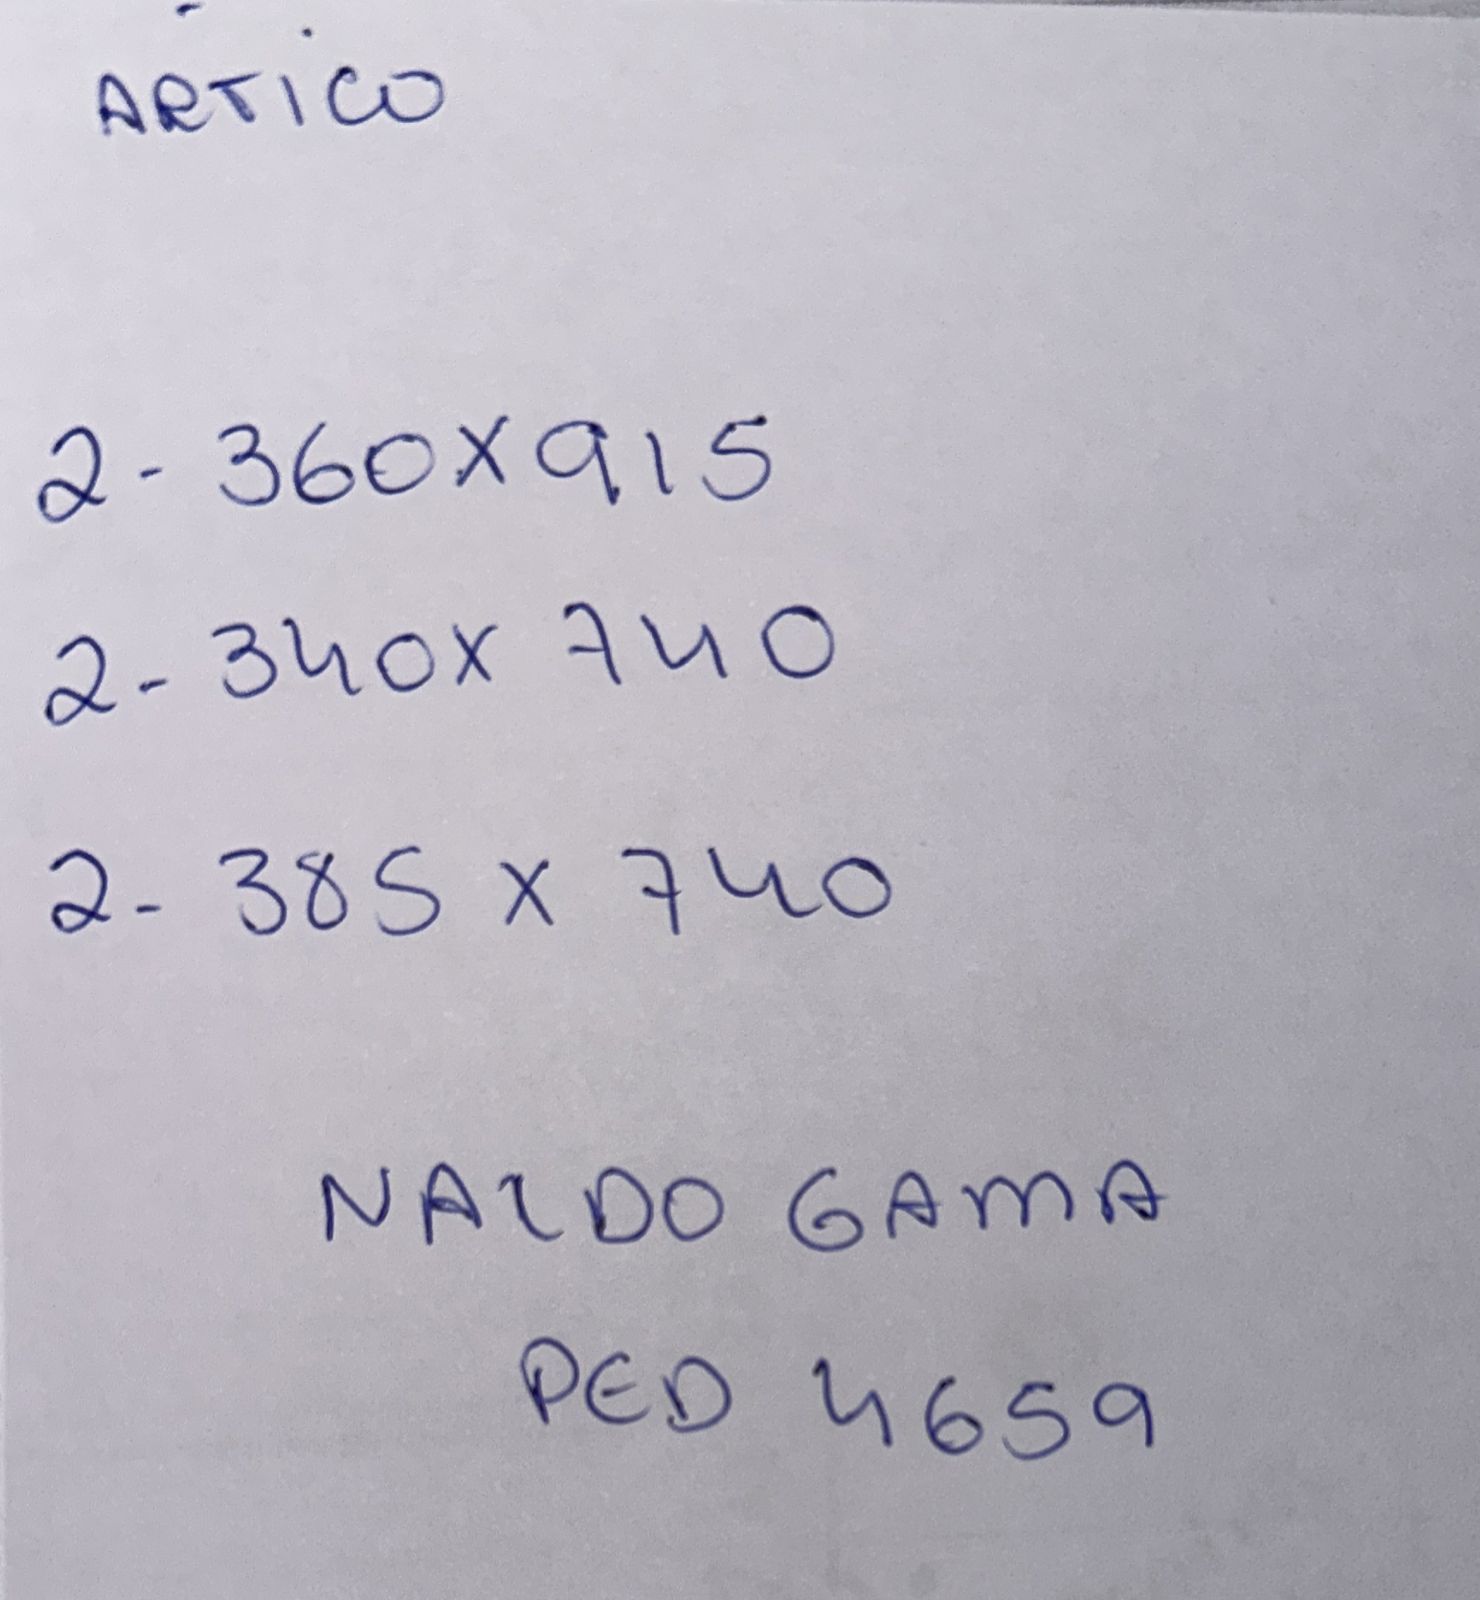 ARTICO
2- 360X915
2- 340X 740
2- 385 X 740
NALDO GAMA
PED 4659